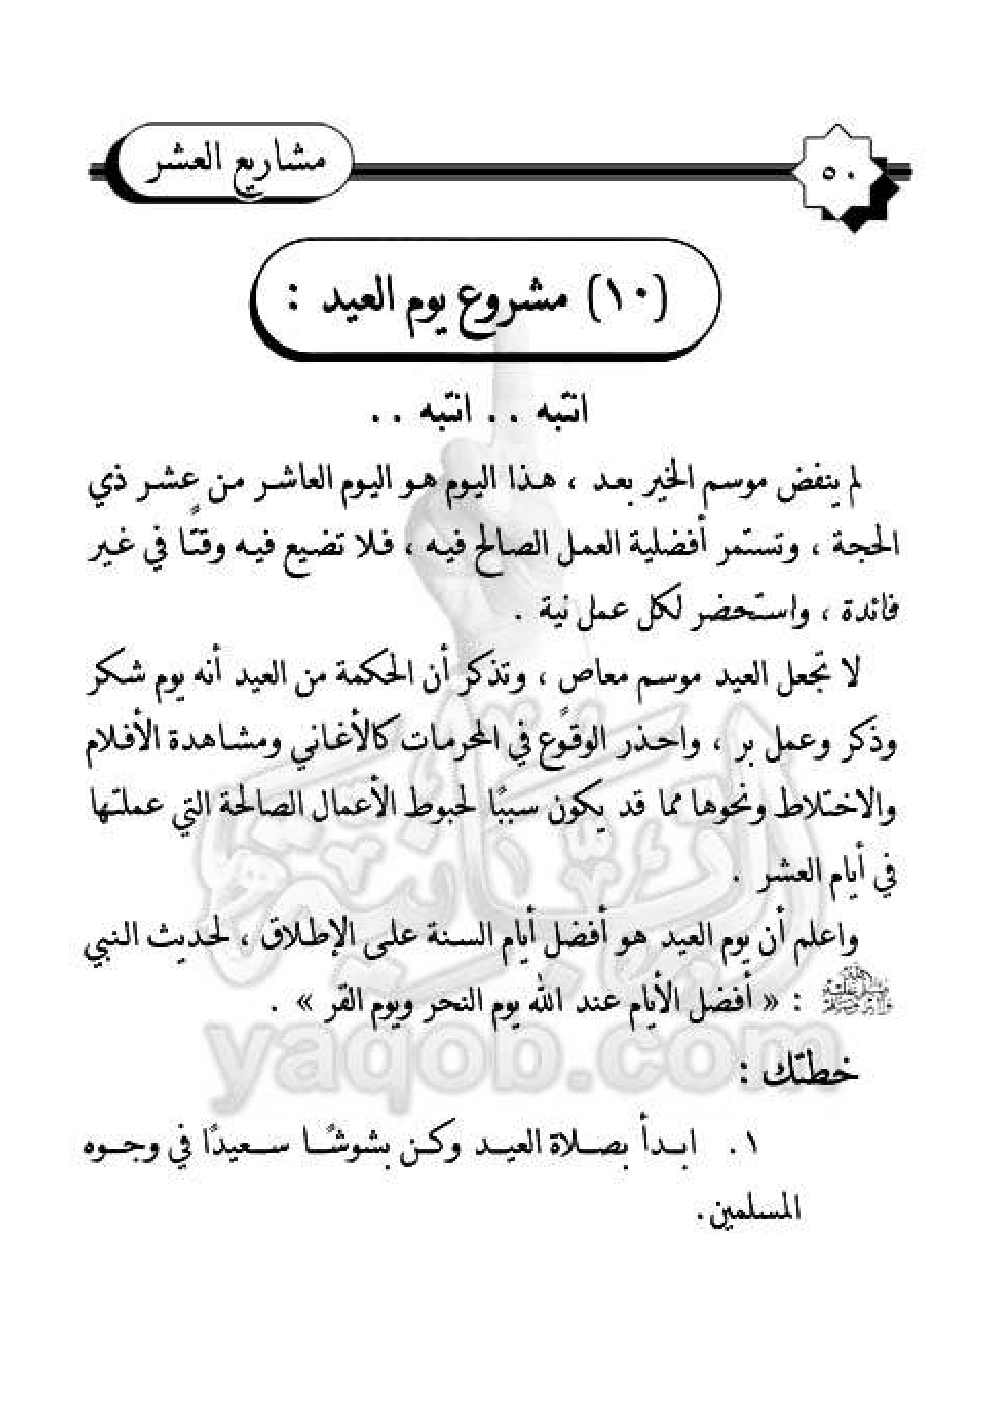 مشاريع العشر
٥٠
(١٠) مشروع يوم العيد :
انتبه . . انتبه . .
لم ينفض موسم الخير بعد ، هذا اليوم هو اليوم العاشر من عشر ذي
الحجة ، وتستمر أفضلية العمل الصالح فيه ، فلا تضيع فيه وقتًا في غير
فائدة ، واستحضر لكل عمل نية .
لا تجعل العيد موسم معاصٍ ، وتذكر أن الحكمة من العيد أنه يوم شكر
وذكر وعمل بر ، واحذر الوقوع في المحرمات كالأغاني ومشاهدة الأفلام
والاختلاط ونحوها مما قد يكون سببًا لحبوط الأعمال الصالحة التي عملتها
في أيام العشر .
واعلم أن يوم العيد هو أفضل أيام السنة على الإطلاق ، لحديث النبي
ﷺ : « أفضل الأيام عند الله يوم النحر ويوم القر » .
yaqob.com
خطتك :
١. ابدأ بصلاة العيد وكن بشوشًا سعيدًا في وجوه
المسلمين.